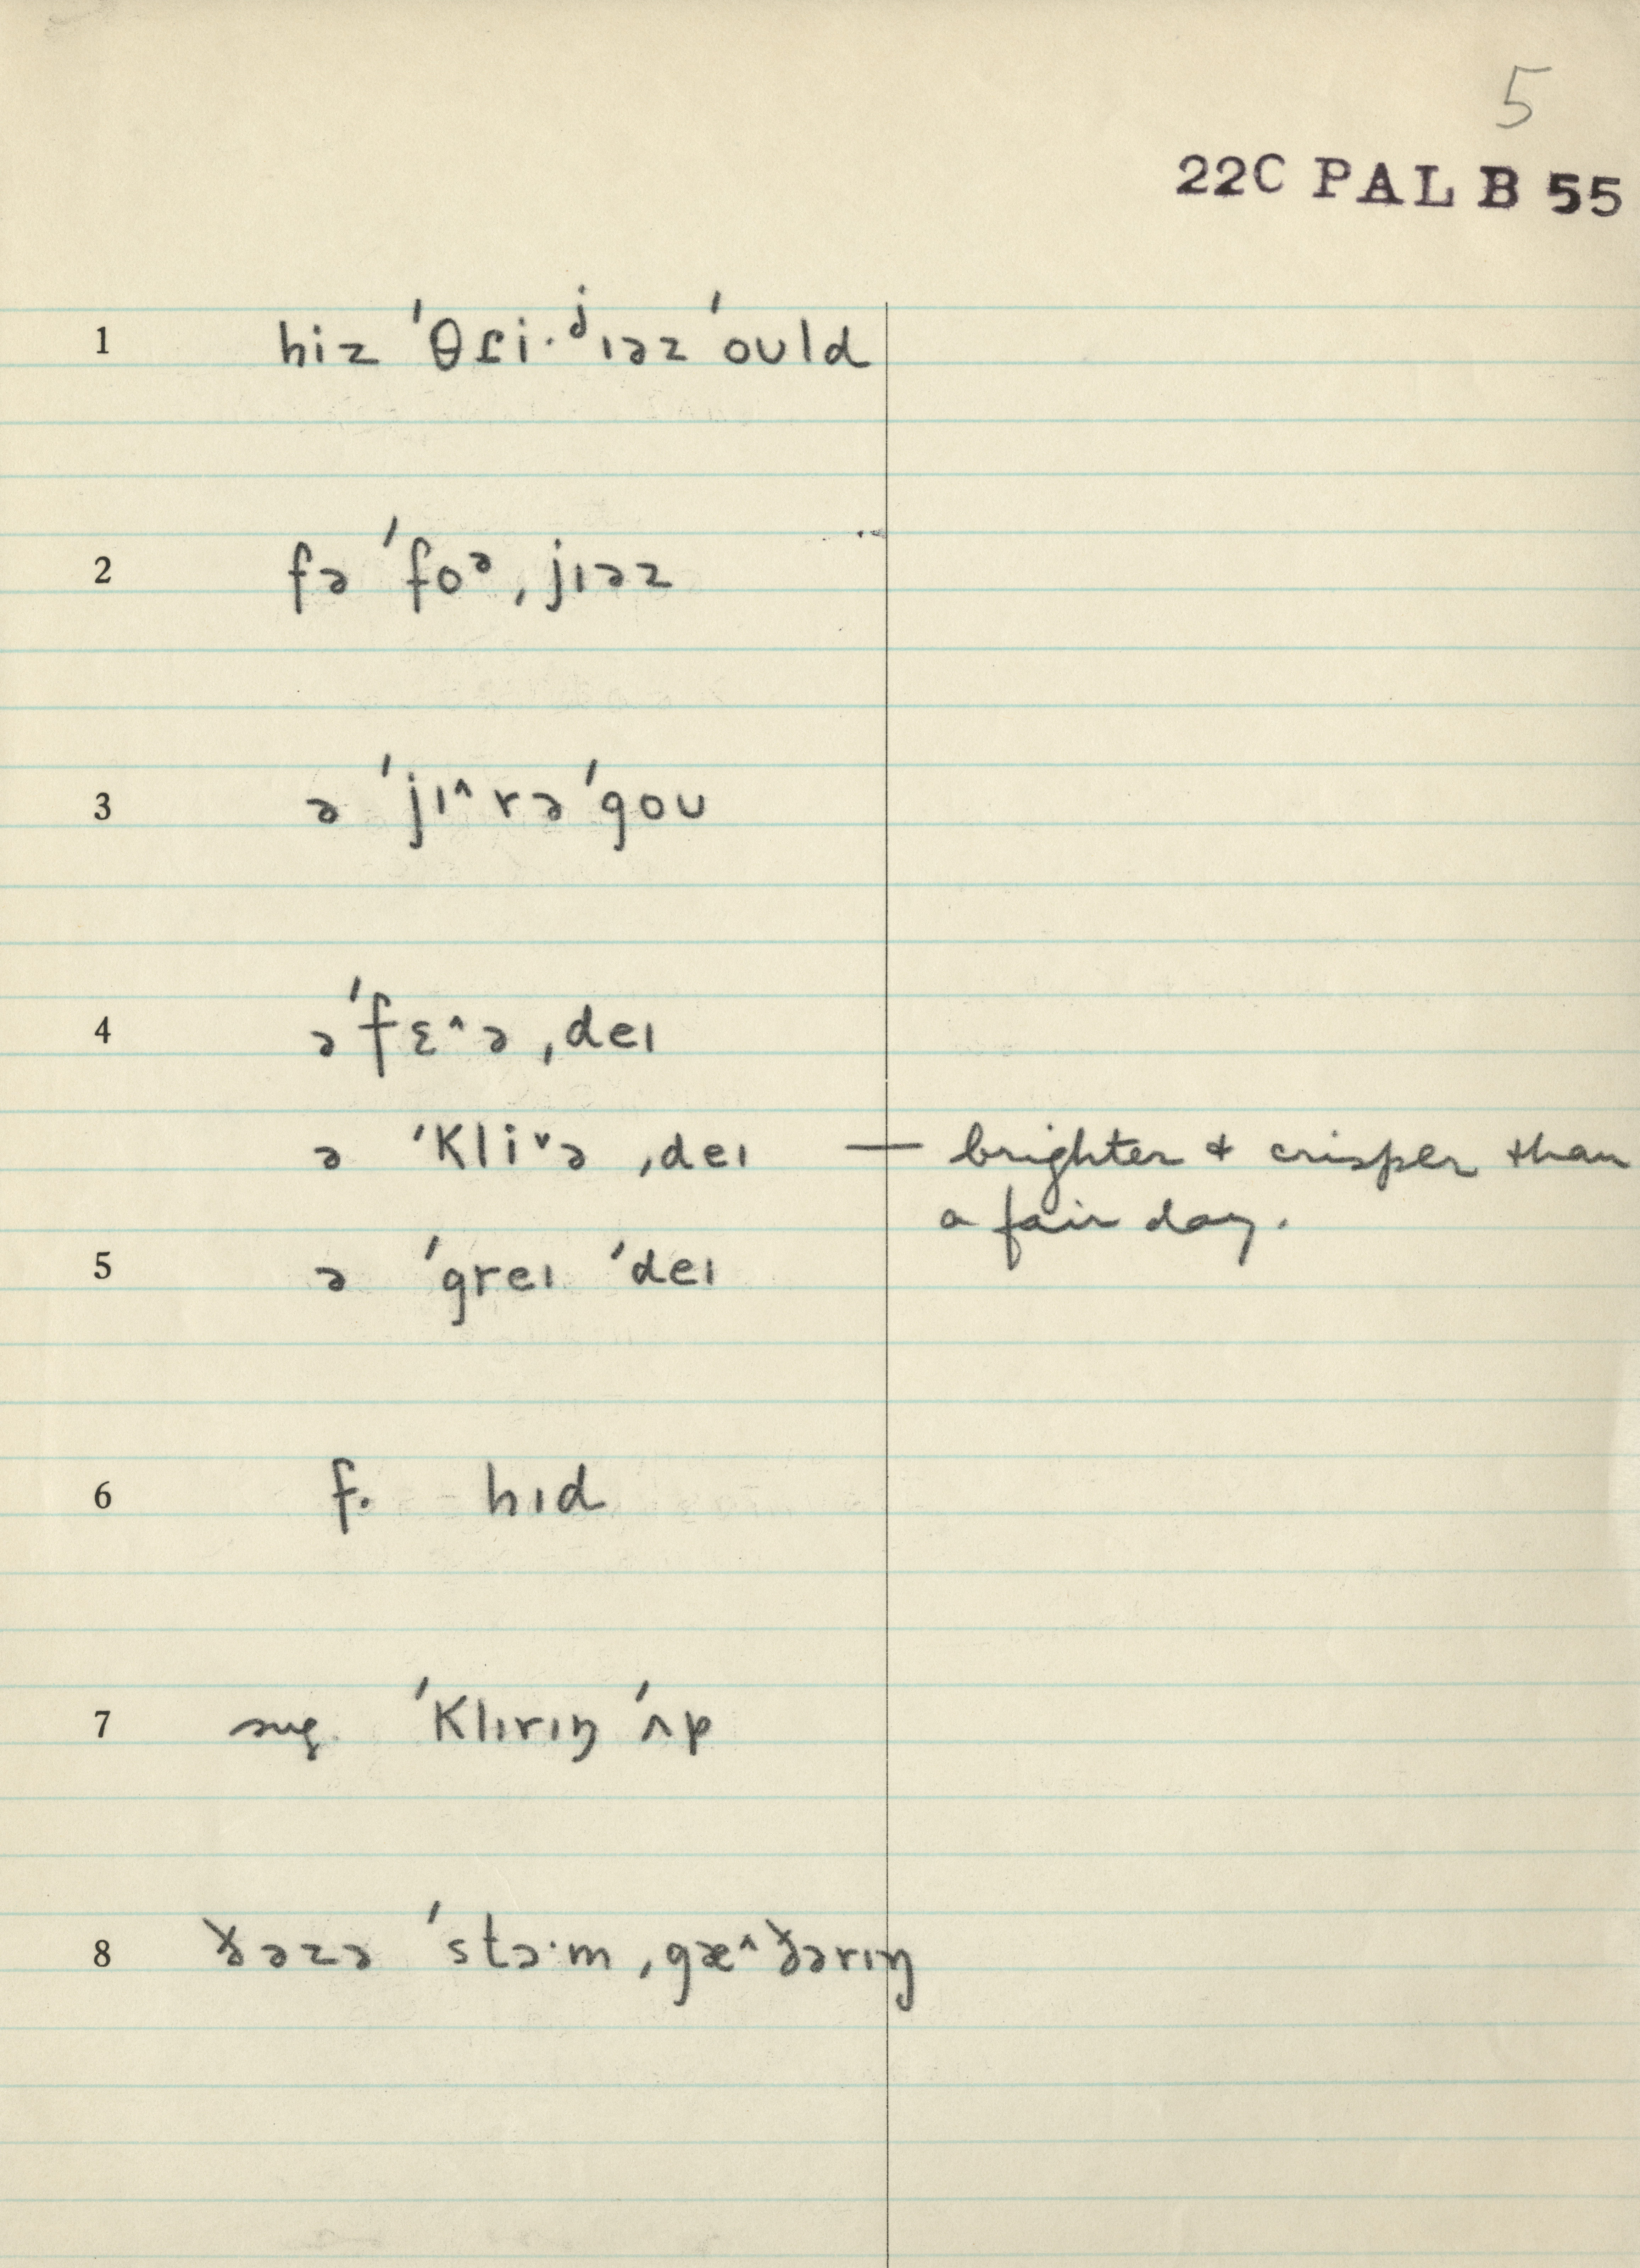 5
22C PAL B 55
1 hiz ˈθɾi·ʲɪəz ˈoʊld
2 fə ˈfoᵊˌjɪəz
3 ə ˈjɪ^rə ˈgoʊ
4 əˈfɛ^əˌdeɪ
ə ˈkliᵛəˌdeɪ — brighter + crisper than
a fair day.
5 ə ˈgreɪ ˈdeɪ
6 f. hɪd
7 sug. ˈklɪrɪŋ ˈʌp
8 ðəzə ˈstɔ·mˌgæ^ðərɪŋ